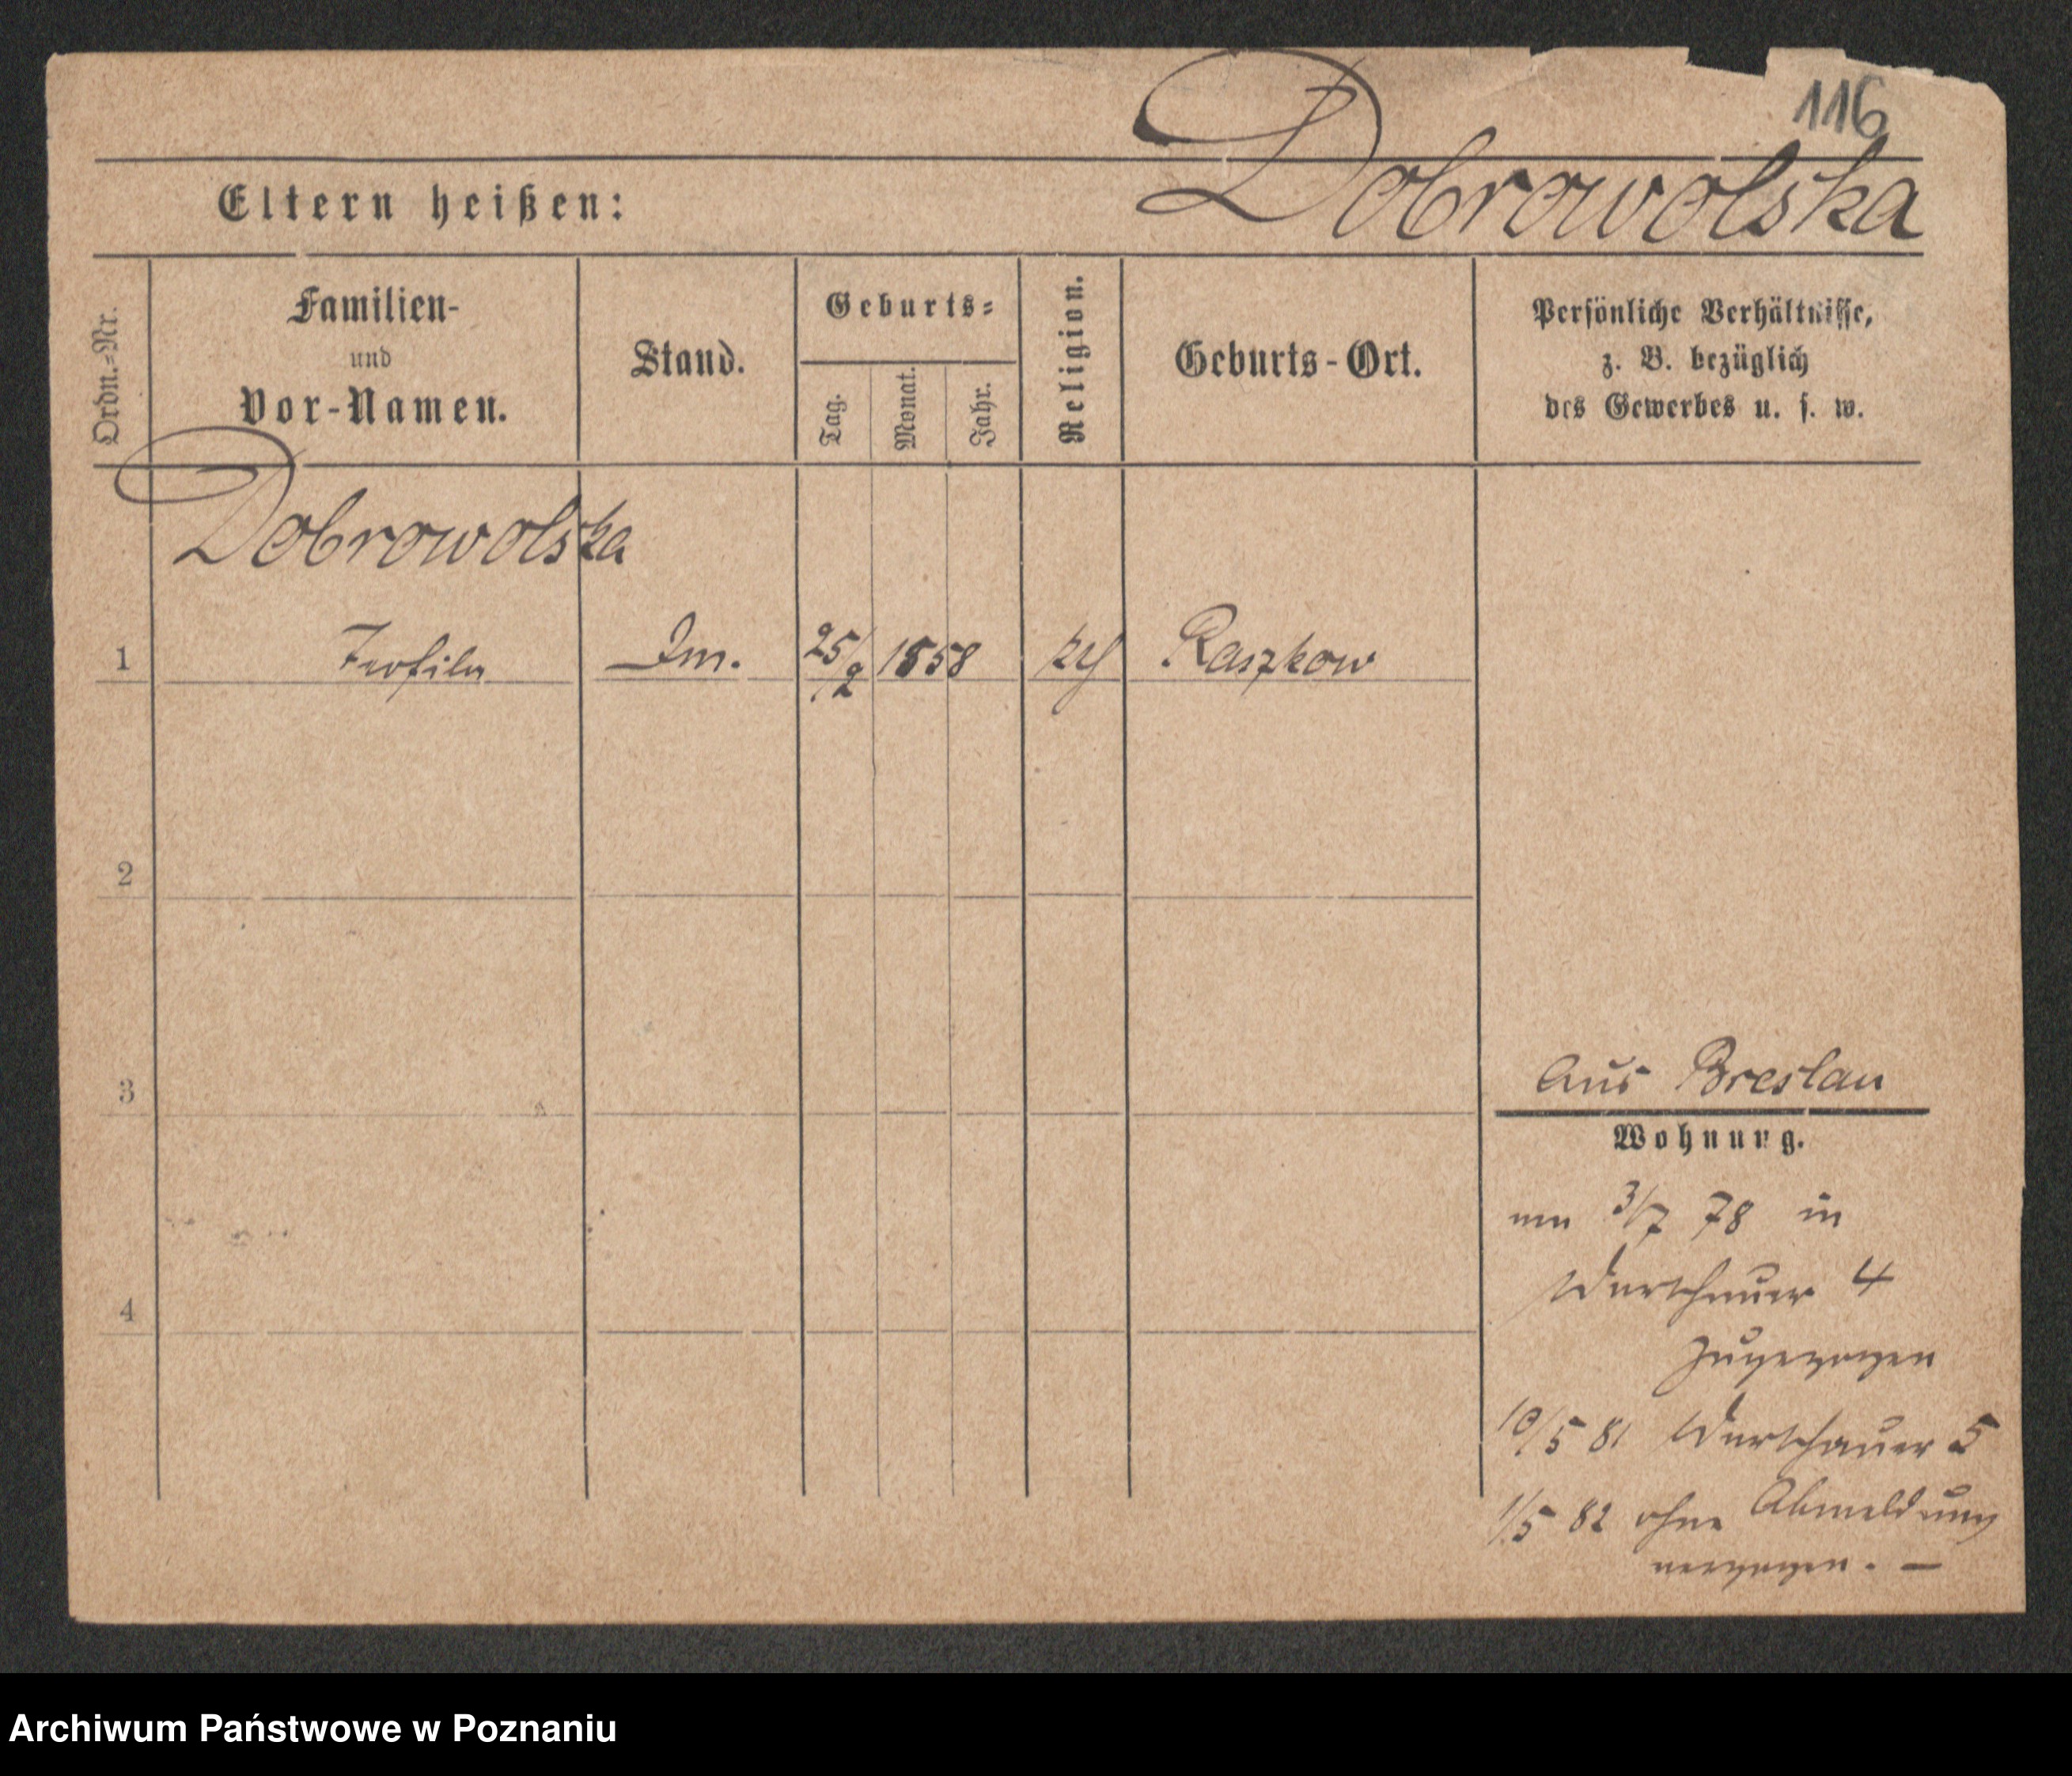 116
Dobrowolska
Eltern heißen:
Ordn.=Nr.
Familien-
und
Vor-Namen.
Stand.
Geburts=
Tag.
Monat.
Jahr.
Religion.
Geburts-Ort.
Persönliche Verhältnisse,
z. B. bezüglich
des Gewerbes u. s. w.
Dobrowolska
1 Teofila 25/2 1858 Raszkow
2
3
4
Aus Breslau
Wohnung.
3/7 78 in
Warschauer 4
zugezogen
10/5 81 Warschauer 5
1/5 82 ohne Abmeldung
verzogen. —
Archiwum Państwowe w Poznaniu